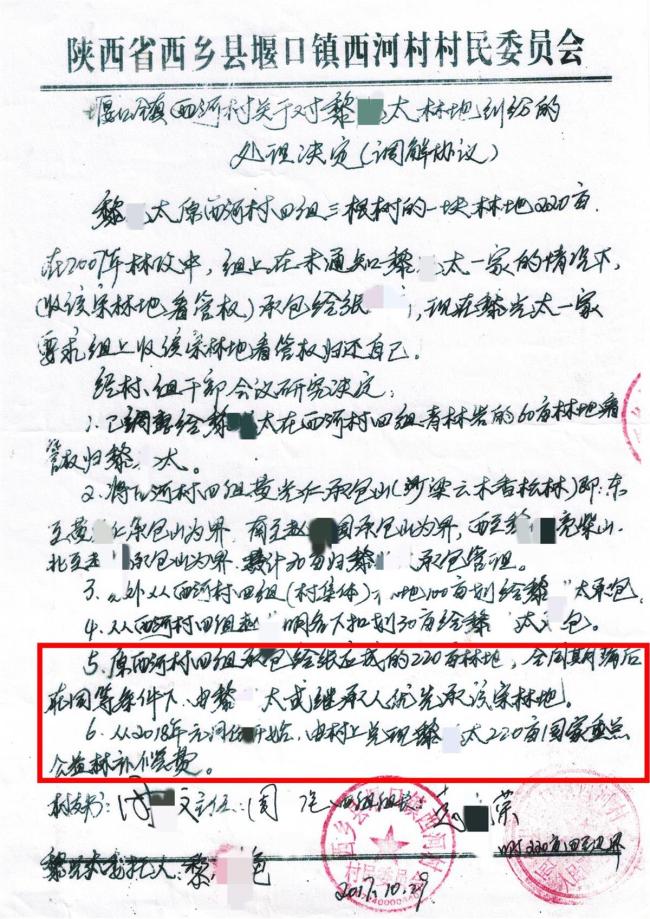 陕西省西乡县堰口镇西河村村民委员会
堰口镇西河村关于对黎 太林地纠纷的
处理决定（调解协议）
黎 太原西河村四组三根树的一块林地220亩.
在2007年林改中，组上在未通知黎 太一家的情况下，
（收该宗林地看管权）承包给张 ，现在黎光太一家
要求组上收该宗林地看管权归还自己.
经村、组干部会议研究决定：
1.已调剂给黎 太在西河村四组青林岩的60亩林地看
管权归黎 太。
2.将西河村四组黄光仁承包山（ 梁云木香 林）即:东
至黄 仁承包山为界，南至赵 国承包山为界，西至 亮柴山.
北至 承包山为界. 计70亩归黎 承包管理.
3. 外从西河村四组（村集体） 地100亩划给黎 太承包.
4.从西河村四组赵 明名下扣划30亩给黎 太 包。
5.原西河村四组承包给张正成的220亩林地，合同期满后
在同等条件下，由黎 太或继承人优先承该宗林地。
6.从2018年元月 开始，由村上兑现黎 太220亩国家重点
公益林补偿费。
村支书: 文 主任: 周 四组组长: 荣
西乡县堰口镇西河村
村民委员会
220亩四至边界
黎 太委托人:黎
2017.10.29